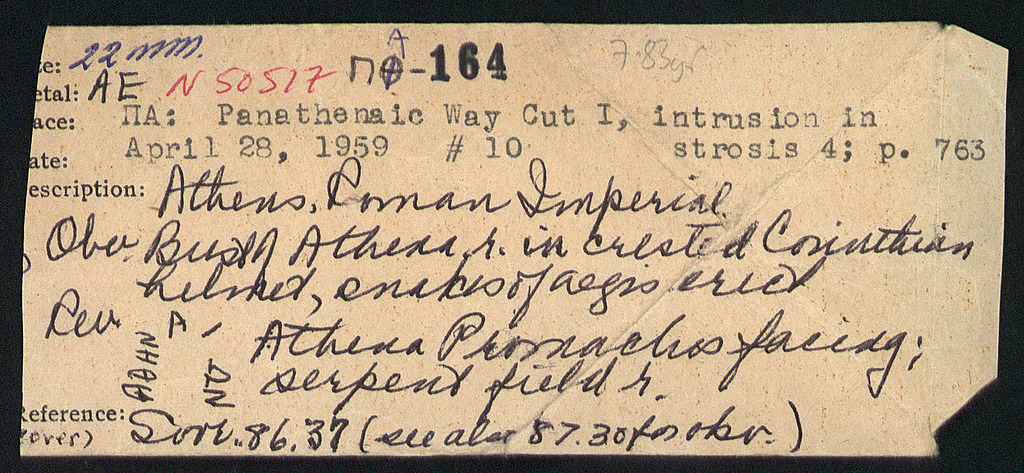 e: 22 mm. ΠΑ-164 7.83gr
etal: AE N 50517
ace: ΠΑ: Panathenaic Way Cut I, intrusion in
ate: April 28, 1959 # 10 strosis 4; p. 763
escription: Athens, Roman Imperial.
Obv. Bust of Athena r. in crested Corinthian
helmet, snakes of aegis erect
Rev. ΑΘΗΝ Α - ΩΝ Athena Promachos facing;
serpent field r.
Reference: Svor. 86.37 (see also 87.30 for obv.)
(over)